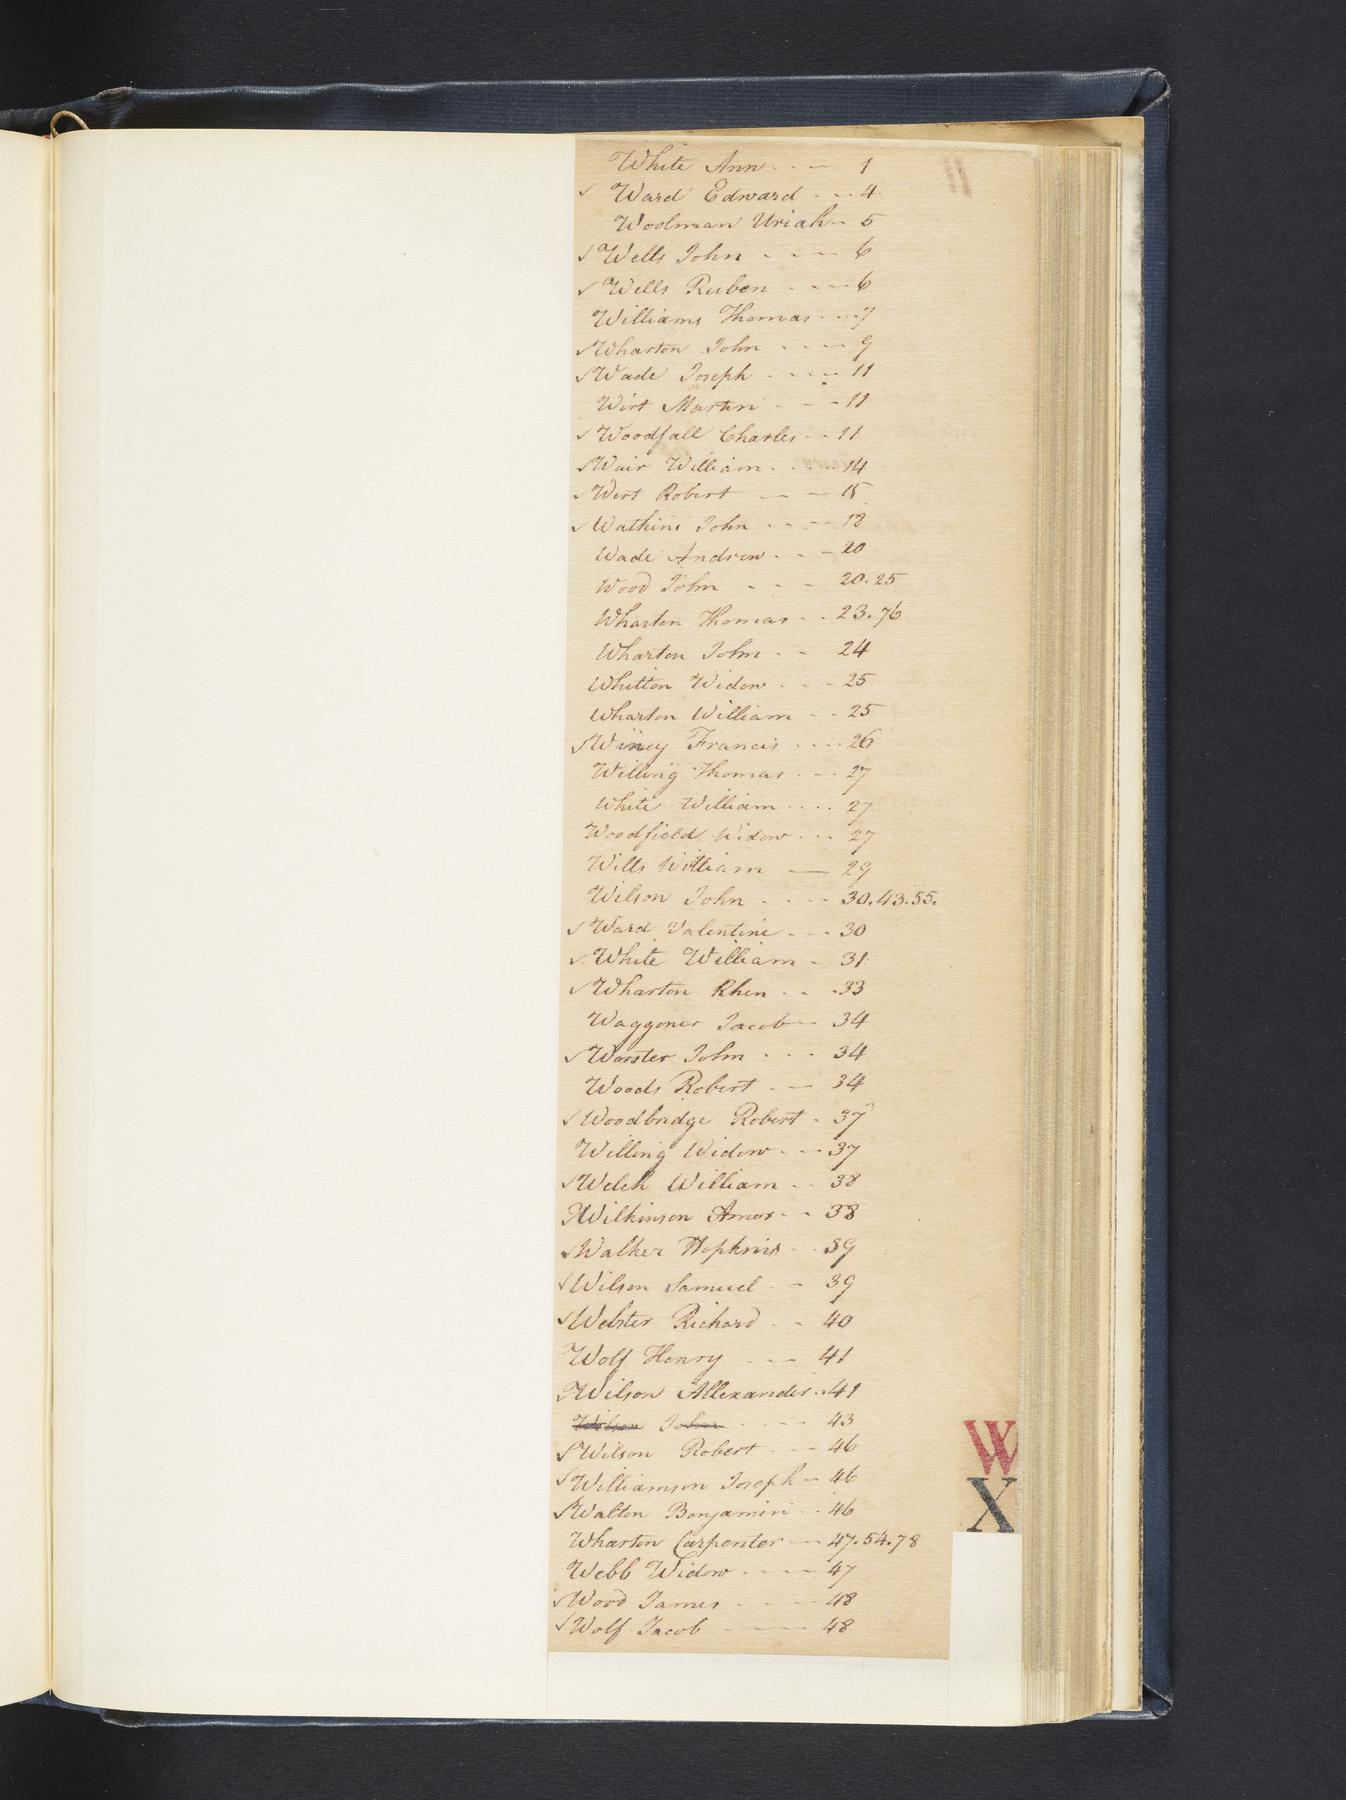 White Ann - - - 1
✓ Ward Edward - - - 4
Woolman Uriah - - 5
✓ Wells John - - - - 6
✓ Wells Reuben - - - - 6
Williams Thomas - - - 7
✓ Wharton John - - - - 9
✓ Wade Joseph - - - - 11
Wirt Martin - - - 11
✓ Woodfall Charles - - 11
✓ Wair William - - - 14
✓ Wert Robert - - - 15
✓ Watkins John - - - - 18
Wade Andrew - - - 20
Wood John - - - 20. 25
Wharton Thomas - - 23. 76
Wharton John - - 24
Whitton Widow - - - 25
Wharton William - - 25
✓ Winey Francis - - - - 26
Willing Thomas - - - 27
White William - - - - 27
Woodfield Widow - - - 27
Wills William — 29
Wilson John - - - - 30. 43. 55.
✓ Ward Valentine - - - 30
✓ White William - 31
✓ Wharton Rhen - - - 33
Waggoner Jacob - - 34
✓ Warster John - - - 34
Woods Robert - - - 34
✓ Woodbridge Robert - 37
Willing Widow - - - 37
✓ Welch William - - 38
✓ Wilkinson Amos - - 38
✓ Walker Hopknis - - 39
✓ Wilson Samuel - - 39
✓ Webster Richard - - 40
Wolf Henry - - - 41
✓ Wilson Allexander - - 41
Wilson John - - - - 43
✓ Wilson Robert - - - 46
✓ Williamson Joseph - 46
✓ Walton Benjamin - - 46
Wharton Carpenter - - 47. 54. 78
Webb Widow - - - - 47
✓ Wood James - - - - 48
✓ Wolf Jacob — 48
W
X